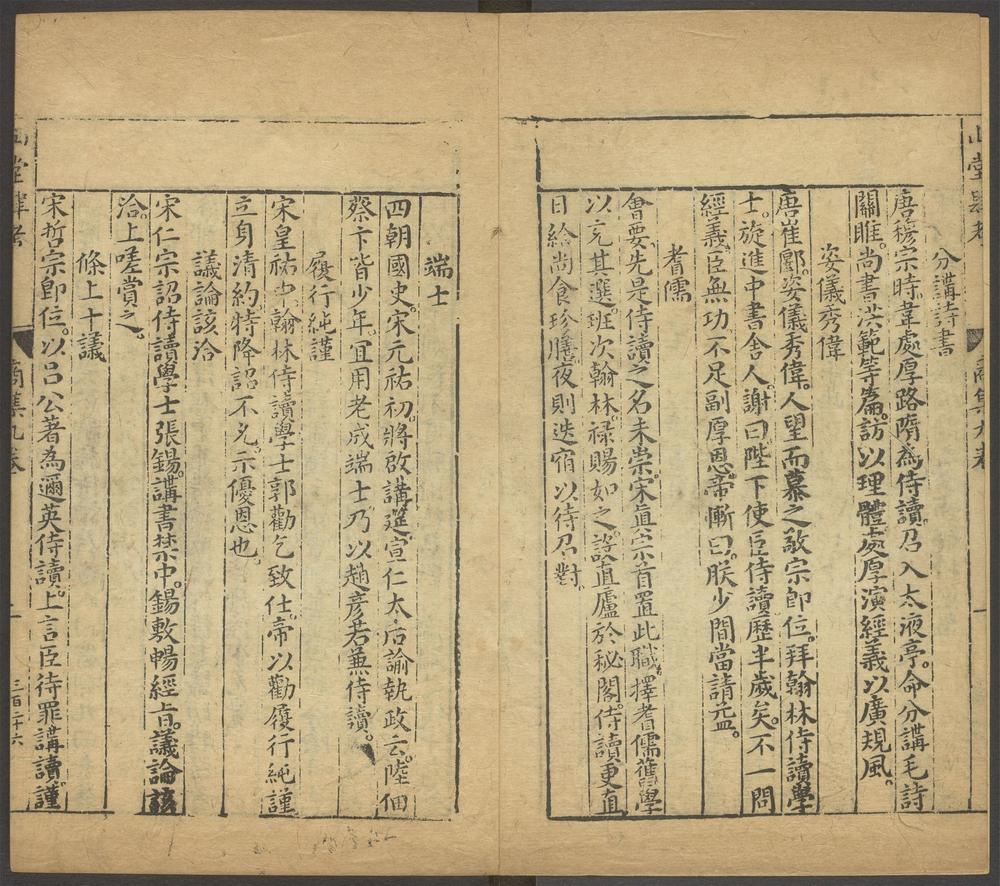 分講詩書
唐穆宗時。韋處厚路隋為侍讀。召入太液亭。命分講毛詩
關雎。尚書洪範等篇。訪以理體。處厚演經義以廣規風。
姿儀秀偉
唐崔郾。姿儀秀偉。人望而慕之。敬宗即位。拜翰林侍讀學
士。旋進中書舍人。謝曰。陛下使臣侍讀歷半歲矣。不一問
經義。臣無功不足副厚恩。帝慚曰。朕少間當請益。
耆儒
會要。先是侍讀之名未崇。宋真宗首置此職。擇耆儒舊學
以充其選。班次翰林。祿賜如之。設直廬於秘閣。侍讀更直
日給尚食珍膳。夜則迭宿以待召對。
端士
四朝國史。宋元祐初。將啟講筵。宣仁太后諭執政云。陸佃
蔡卞皆少年。宜用老成端士。乃以趙彥若兼侍讀。
履行純謹
宋皇祐中。翰林侍讀學士郭勸乞致仕。帝以勸履行純謹
立身清約。特降詔不允。示優恩也。
議論該洽
宋仁宗詔侍讀學士張錫講書禁中。錫敷暢經旨。議論該
洽。上嗟賞之。
條上十議
宋哲宗即位。以呂公著為邇英侍讀。上言臣待罪講讀。謹
山堂肆考
商集九卷
一
三百二十六